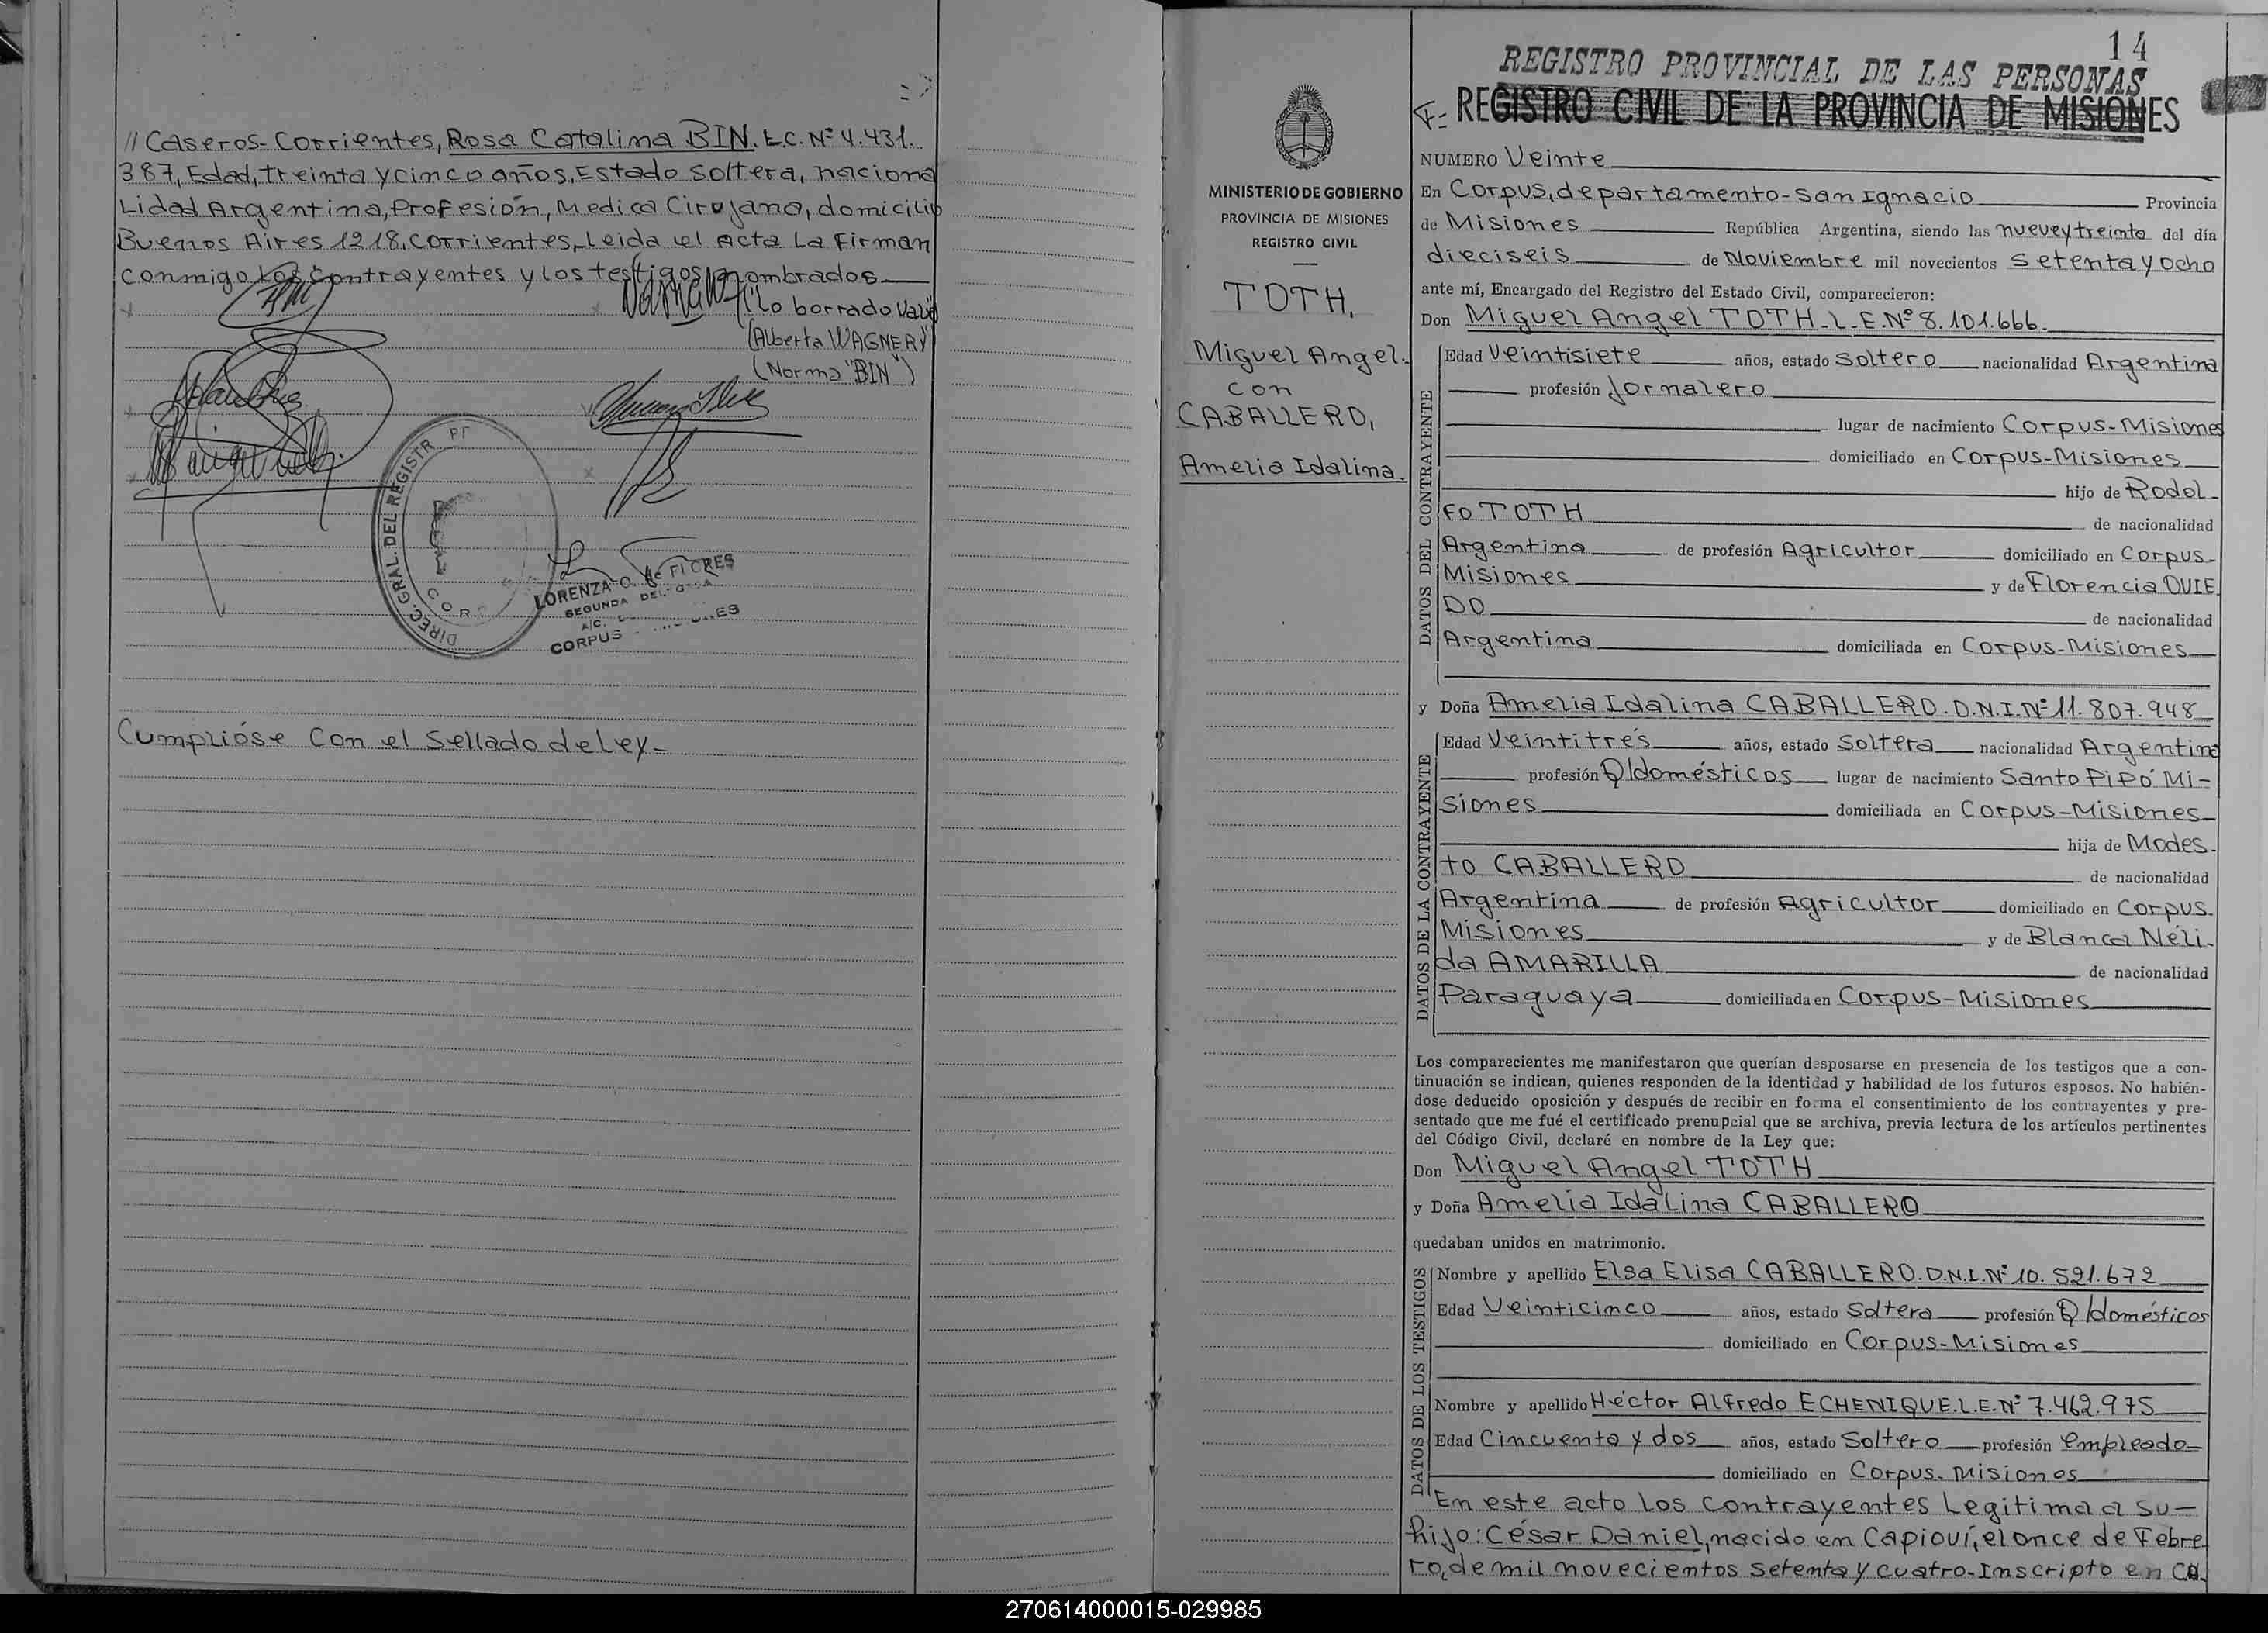 // Caseros-Corrientes, Rosa Catalina BIN. L.C. Nº 4.431.
387, Edad, treinta y cinco años, Estado Soltera, naciona
Lidad Argentina, Profesión, Medica Cirujana, domicilio
Buenos Aires 1218, Corrientes, Leida el acta La Firman
conmigo Los Contrayentes y los testigos nombrados
lo borrado Vale
(Alberta WAGNER)
(Norma "BIN")
DIREC. GRAL. DEL REGISTR
LORENZA O. de FLORES
SEGUNDA
A/C.
CORPUS
Cumplióse Con el Sellado de Ley-
14
REGISTRO PROVINCIAL DE LAS PERSONAS
REGISTRO CIVIL DE LA PROVINCIA DE MISIONES
MINISTERIO DE GOBIERNO
PROVINCIA DE MISIONES
REGISTRO CIVIL
TOTH,
Miguel Angel.
con
CABALLERO,
Amelia Idalina.
NUMERO Veinte
En Corpus, departamento-San Ignacio Provincia
de Misiones República Argentina, siendo las nueve y treinta del día
dieciseis de Noviembre mil novecientos Setenta y ocho
ante mí, Encargado del Registro del Estado Civil, comparecieron:
Don Miguel Angel TOTH-L.E.Nº 8.101.666.
DATOS DEL CONTRAYENTE
Edad Veintisiete años, estado Soltero nacionalidad Argentina
profesión Jornalero
lugar de nacimiento Corpus-Misiones
domiciliado en Corpus-Misiones
hijo de Rodol-
fo TOTH de nacionalidad
Argentina de profesión Agricultor domiciliado en Corpus-
Misiones y de Florencia OVIE
DO de nacionalidad
Argentina domiciliada en Corpus-Misiones
y Doña Amelia Idalina CABALLERO. D.N.I. Nº 11.807.948
DATOS DE LA CONTRAYENTE
Edad Veintitrés años, estado Soltera nacionalidad Argentina
profesión Q/domésticos lugar de nacimiento Santo Pipó Mi-
siones domiciliada en Corpus-Misiones
hija de Modes-
to CABALLERO de nacionalidad
Argentina de profesión Agricultor domiciliado en Corpus-
Misiones y de Blanca Néli-
da AMARILLA de nacionalidad
Paraguaya domiciliada en Corpus-Misiones
Los comparecientes me manifestaron que querían desposarse en presencia de los testigos que a con-
tinuación se indican, quienes responden de la identidad y habilidad de los futuros esposos. No habién-
dose deducido oposición y después de recibir en forma el consentimiento de los contrayentes y pre-
sentado que me fué el certificado prenupcial que se archiva, previa lectura de los artículos pertinentes
del Código Civil, declaré en nombre de la Ley que:
Don Miguel Angel TOTH
y Doña Amelia Idalina CABALLERO
quedaban unidos en matrimonio.
DATOS DE LOS TESTIGOS
Nombre y apellido Elsa Elisa CABALLERO. D.N.I. Nº 10.521.672
Edad Veinticinco años, estado Soltera profesión Q/domésticos
domiciliado en Corpus-Misiones
Nombre y apellido Héctor Alfredo ECHENIQUE. L.E. Nº 7.462.975
Edad Cincuenta y dos años, estado Soltero profesión empleado
domiciliado en Corpus-Misiones
En este acto los Contrayentes Legitiman a su-
hijo: César Daniel, nacido en Capioví, el once de Febre
ro, de mil novecientos setenta y cuatro-Inscripto en CA.
270614000015-029985